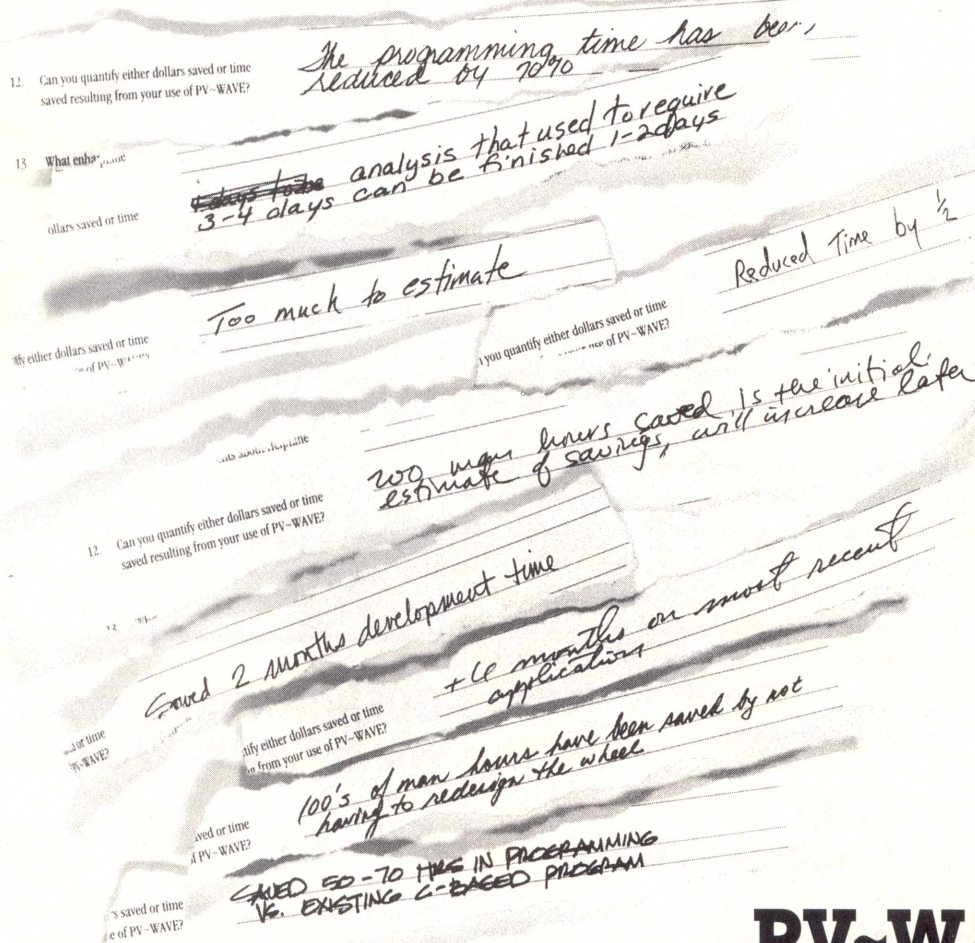 12. Can you quantify either dollars saved or time
saved resulting from your use of PV~WAVE?
The programming time has been
reduced by 70%
13. What
analysis that used to require
3-4 days can be finished 1-2 days
ollars saved or time
Too much to estimate
ify either dollars saved or time
of PV~
Reduced Time by 1/2
n you quantify either dollars saved or time
use of PV~WAVE?
200 man hours saved is the initial
estimate of savings, will increase later
12. Can you quantify either dollars saved or time
saved resulting from your use of PV~WAVE?
Saved 2 months development time
or time
PV~WAVE?
months on most recent
application
tify either dollars saved or time
from your use of PV~WAVE?
100's of man hours have been saved by not
having to redesign the wheel
ved or time
PV~WAVE?
SAVED 50-70 HRS IN PROGRAMMING
VS. EXISTING C-BASED PROGRAM
's saved or time
e of PV~WAVE?
PV~W